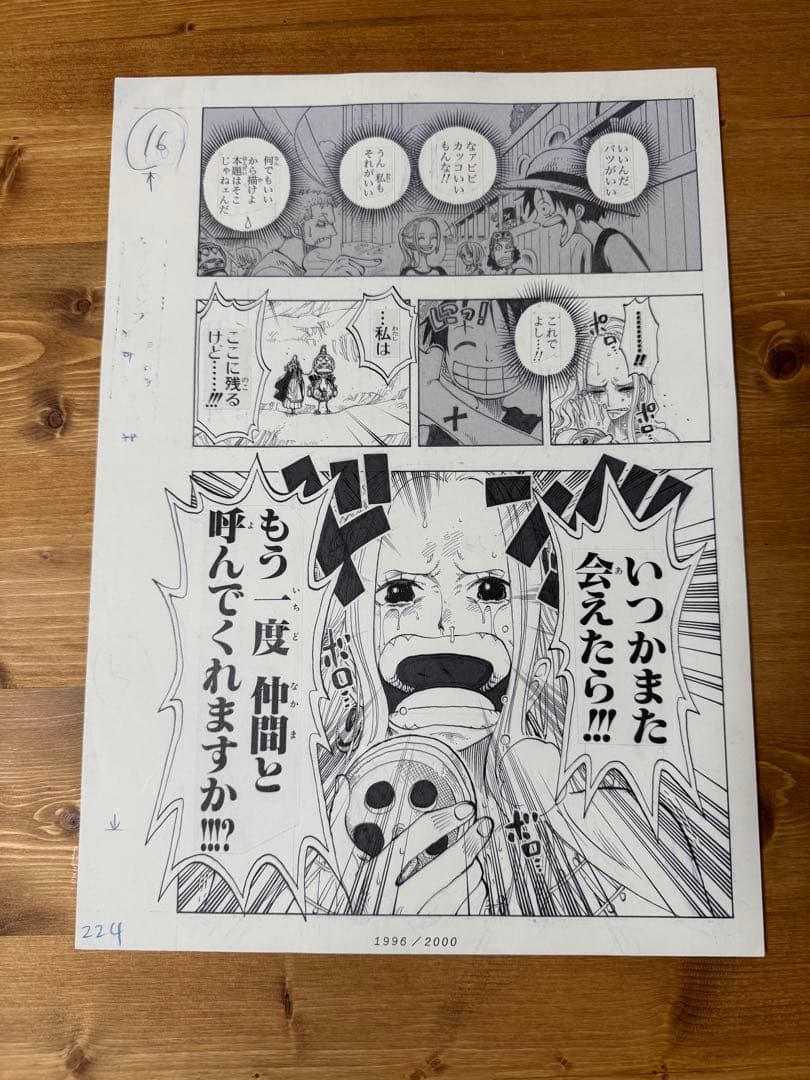 16
いいんだ
バツがいい
なァビビ
カッコいい
もんな!!
うん 私も
それがいい
何でもいい
から描けよ
本題はそこ
じゃねェんだ
………!!
ポロ…
ポロ…
これで
よし…!!
…私は
ここに残る
けど……!!!
いつかまた
会えたら!!!
もう一度 仲間と
呼んでくれますか!!!?
ボロ…
ボロ…
224
1996/2000